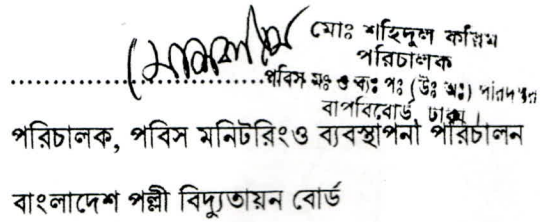 মোঃ শহিদুল করিম
পরিচালক
পবিস মঃ ও ব্যঃ পঃ (উঃ অঃ) পরিদপ্তর
বাপবিবোর্ড, ঢাকা।
পরিচালক, পবিস মনিটরিংও ব্যবস্থাপনা পরিচালন
বাংলাদেশ পল্লী বিদ্যুতায়ন বোর্ড